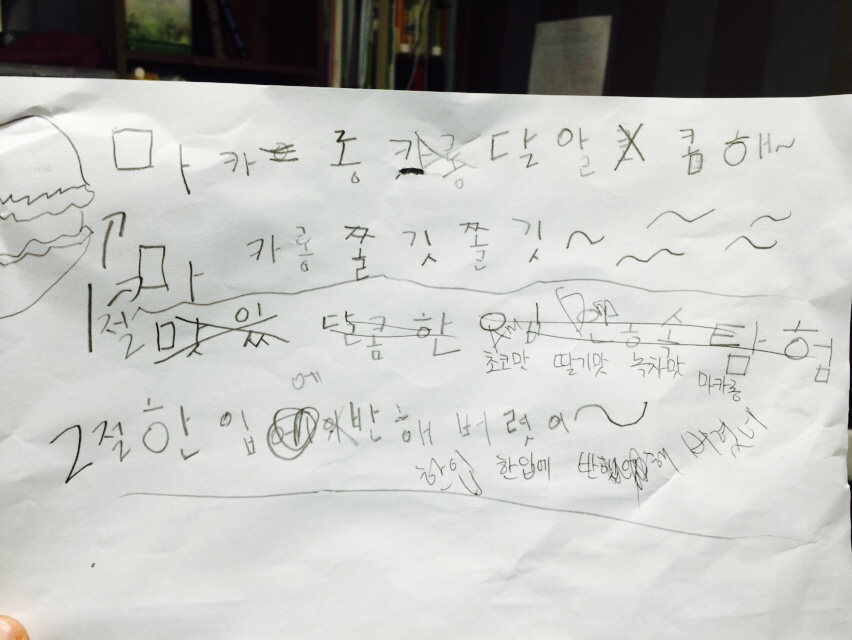 마 카 롱 달 알 콤 해~
마 카 롱 쫄 깃 쫄 깃 ~ ~ ~ ~ ~
1절 맛 있 달 콤 한
초코맛 딸기맛 녹차맛 마카롱
에
2절 한 입 반 해 버 렷 어~
한입 한입에 해 버렷너